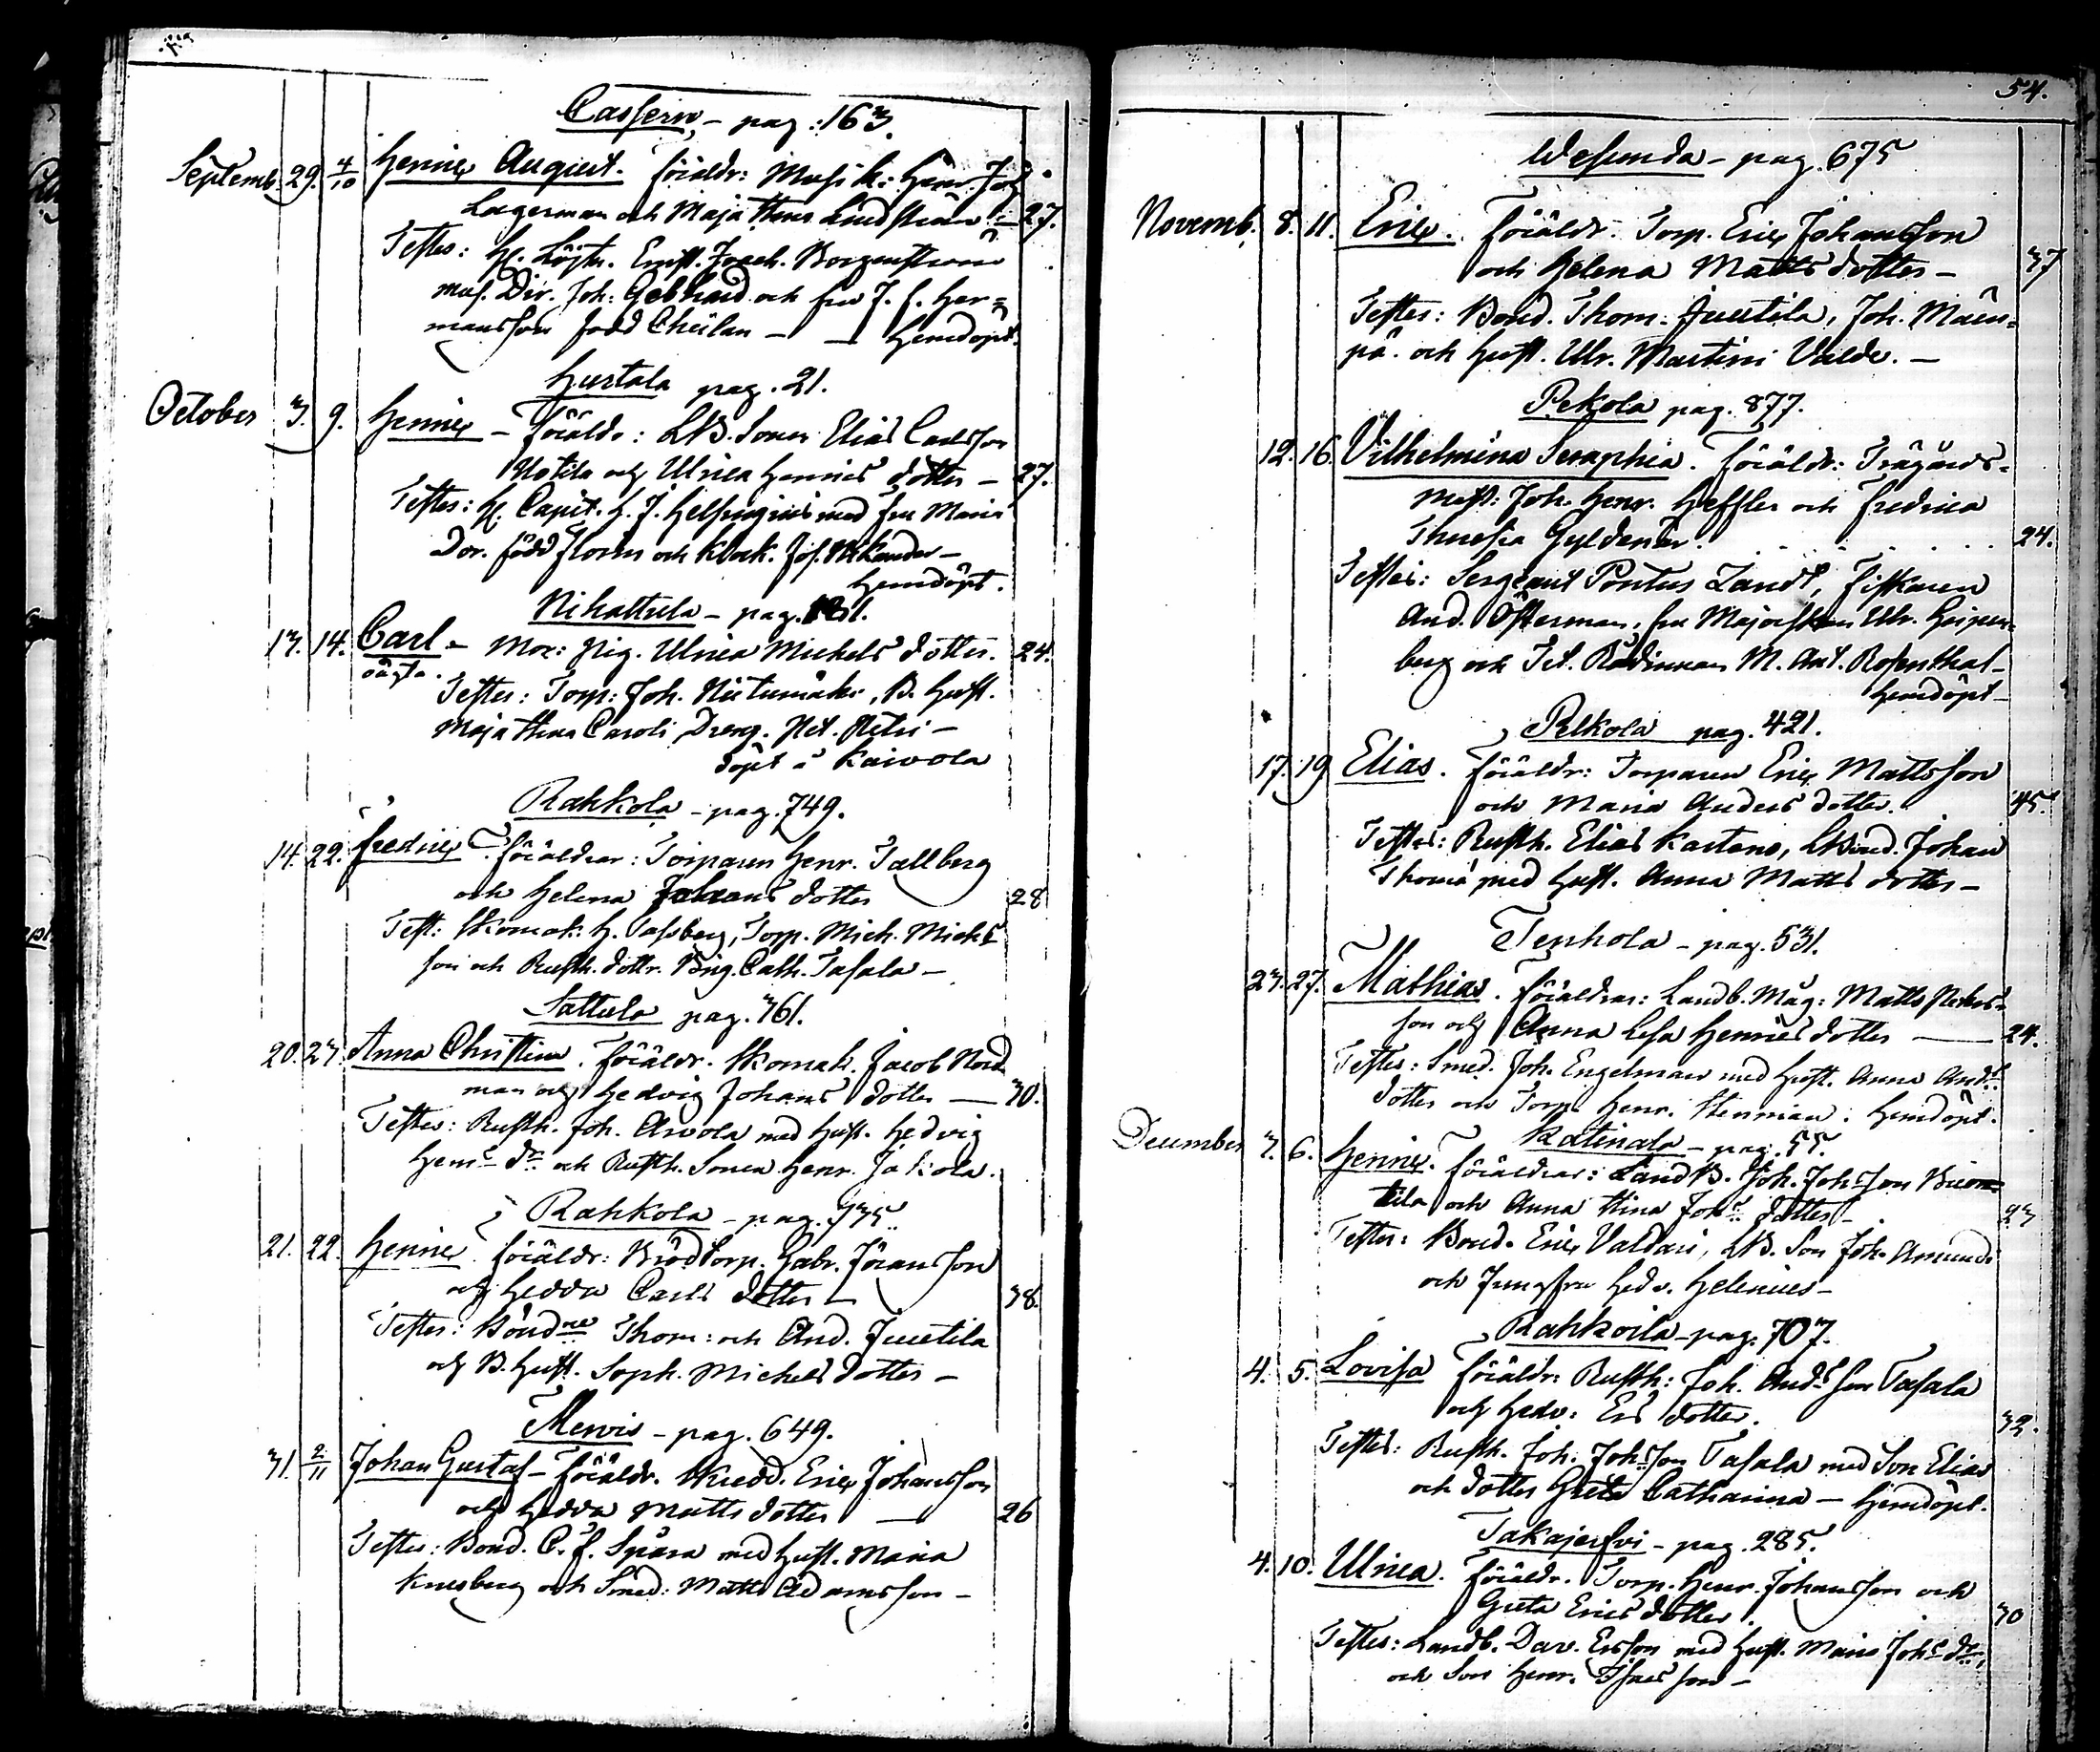 Cassern, - pag: 163.
Septemb. 29. 4/10 Henric August. föräldr: Musik: Henr. Joh
Lagerman och Maja Stina Lindström - 27.
Testes: H. Löjtn. Ernst. Joach. Borgenström
mus. Dir. Joh: Gebhard och fru J. f. Her=
mansson född Cheilan - - Hemdöpt.
Hurtala pag. 21.
October 3. 9. Henric - föräldr: LB. Sonen Elias Carlsson
Uotila och Ulrica Henrics dotter - 27.
Testes: H. Capit. H. J. Helsingius med fru Maria
Dor. född Florin och Klock. Jos. Nikander -
Hemdöpt.
Nihattula - pag. 131.
13. 14. Carl - Mor: Pig. Ulrica Michels dotter. 24.
oägta. Testes: Torp: Joh. Niitumäki, B. Hust.
Maja Stina Caroli, Dreng. Pet. Petri -
döpt i Kaivola
Rahkola - pag. 749.
14. 22. Fredric. föräldrar: Torparen Henr. Tallberg
och Helena Johans dotter 28
Test: Skomak. H. Tassberg, Torp. Mich. Michs
son och Rusth. dottr. Brig. Cath. Tasala -
Sattula pag. 361.
20. 23. Anna Christina. föräldr. Skomak. Jacob Nord
man och Hedvig Johans dotter - 30.
Testes: Rusth. Joh. Arvola med Hust. Hedvig
Hems dr och Rusth. Sonen Henr. Jakola.
Rahkola - pag. 735.
21. 22. Henric föräldr: BrödTorp. Gabr. Jöransson
och Hedda Carls dotter - 38.
Testes: Bönd:ne Thom: och And. Juutila
och B. Hust. Soph. Michels dotter -
Mervis - pag. 649.
31. 2/11 Johan Gustaf - föräldr. Skredd. Eric Johansson
och Hedda Matts dotter - 26
Testes: Bond. C. f. Spåra med Hust. Maria
Knesberg och Smed: Matts Adamsson -
54.
Wesunda - pag. 675
Novemb. 8. 11. Eric. Föräldr. Torp. Eric Johansson
och Helena Matts dotter - 37
Testes: Bond. Thom. Juutila, Joh. Mäen=
pä. och Hust. Ulr. Martini Valde. -
Pekola pag. 877.
12. 16. Vilhelmina Seraphia. föräldr: Trägårds=
mest: Joh. Henr. Heffler och Fredrica
Theresia Gyldenär. 24.
Testes: Sergeant Pontus Landt, Fiskaren
And. Österman, fru Majorskan Ulr. Gripen=
berg och Tit. Rådinnan M. Ant. Rosenthal -
Hemdöpt -
Pelkola pag. 421.
17. 19 Elias. Föräldr: Torparen Eric Mattsson
och Maria Anders dotter. 45.
Testes: Rusth. Elias Kartano, LBond. Johan
Thomä med Hust. Anna Matts dotter -
Tenhola - pag. 531.
23. 27. Mathias. föräldrar: Landb. Måg: Matts Michels=
son och Anna Lisa Henrics dotter - 24.
Testes: Smed. Joh. Engelman med Hust. Anna Ands
dotter och Torp. Henr. Stenman. Hemdöpt.
Katinala - pag. 55.
December 3. 6. Henric. föräldrar: LandB. Joh. Johsson Vuoren=
tila och Anna Stina Johs dotter - 23
Testes: Bond. Eric Valdari, LB. Son Joh. Amundi
och Jungfru Hedv. Helenius -
Rahkoila - pag. 707.
4. 5. Lovisa föräldr: Rusth: Joh. Ands son Tasala
och Hedv: Ers dotter. 32.
Testes: Rusth. Joh. Johsson Tasala med Son Elias
och dotter Greta Catharina - Hemdöpt.
Takajerfvi - pag. 285.
4. 10. Ulrica. föräldr. Torp. Henr. Johansson och
Greta Erics dotter. 30
Testes: Landb. Dav. Ersson med Hust. Maria Johs dr,
och Son Henr. Isacsson -